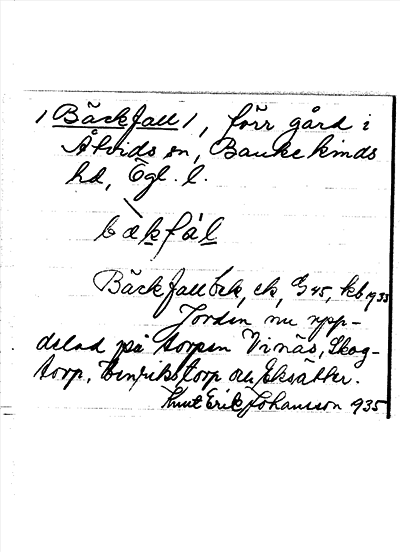 /Bäckfall/, förr gård i
Åtvids sn, Bankekinds
hd, Ögl. l.
bækfál
Bäckfall Jrk, ek, G 45, kb 1933
Jorden nu upp-
delad på torpen Vinäs, Skog-
torp, Henrikstorp och Eksätter.
Knut Erik Johansson 1935